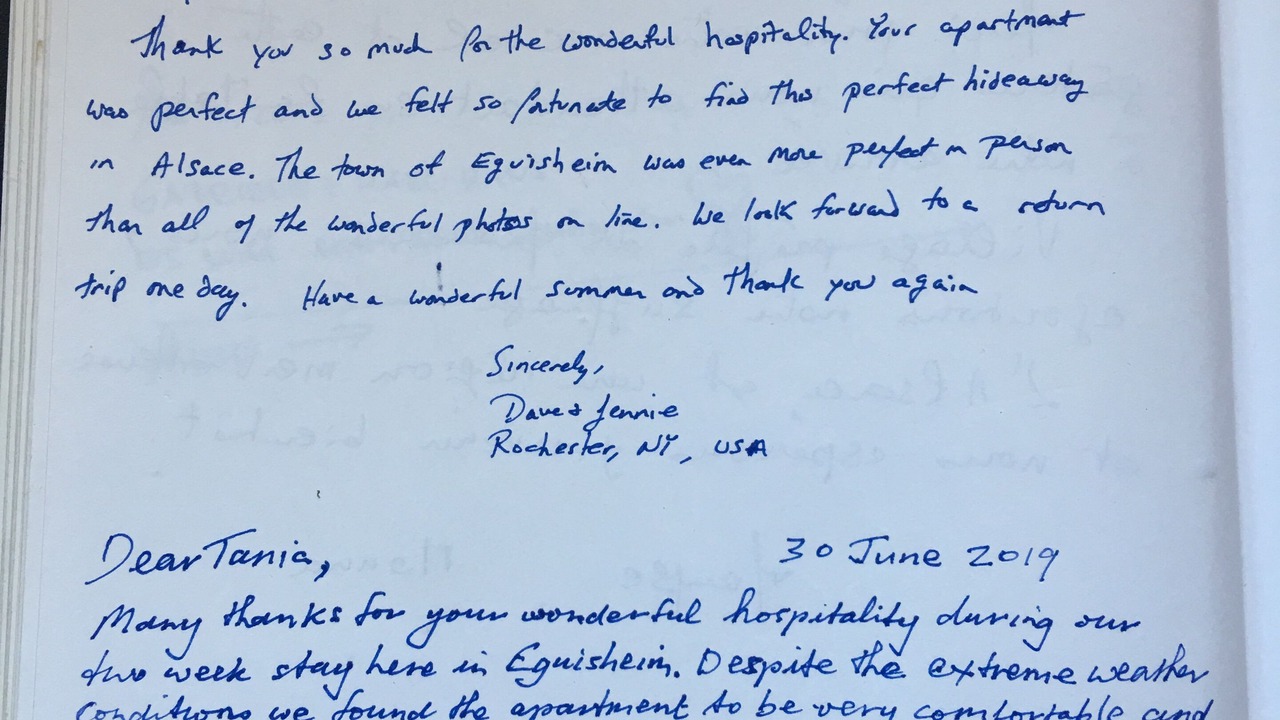 Thank you so much for the wonderful hospitality. Your apartment
was perfect and we felt so fortunate to find this perfect hideaway
in Alsace. The town of Eguisheim was even more perfect in person
than all of the wonderful photos on line. We look forward to a return
trip one day. Have a wonderful summer and thank you again
Sincerely,
Dave & Jennie
Rochester, NY, USA
Dear Tania, 30 June 2019
Many thanks for your wonderful hospitality during our
two week stay here in Eguisheim. Despite the extreme weather
conditions we found the apartment to be very comfortable and